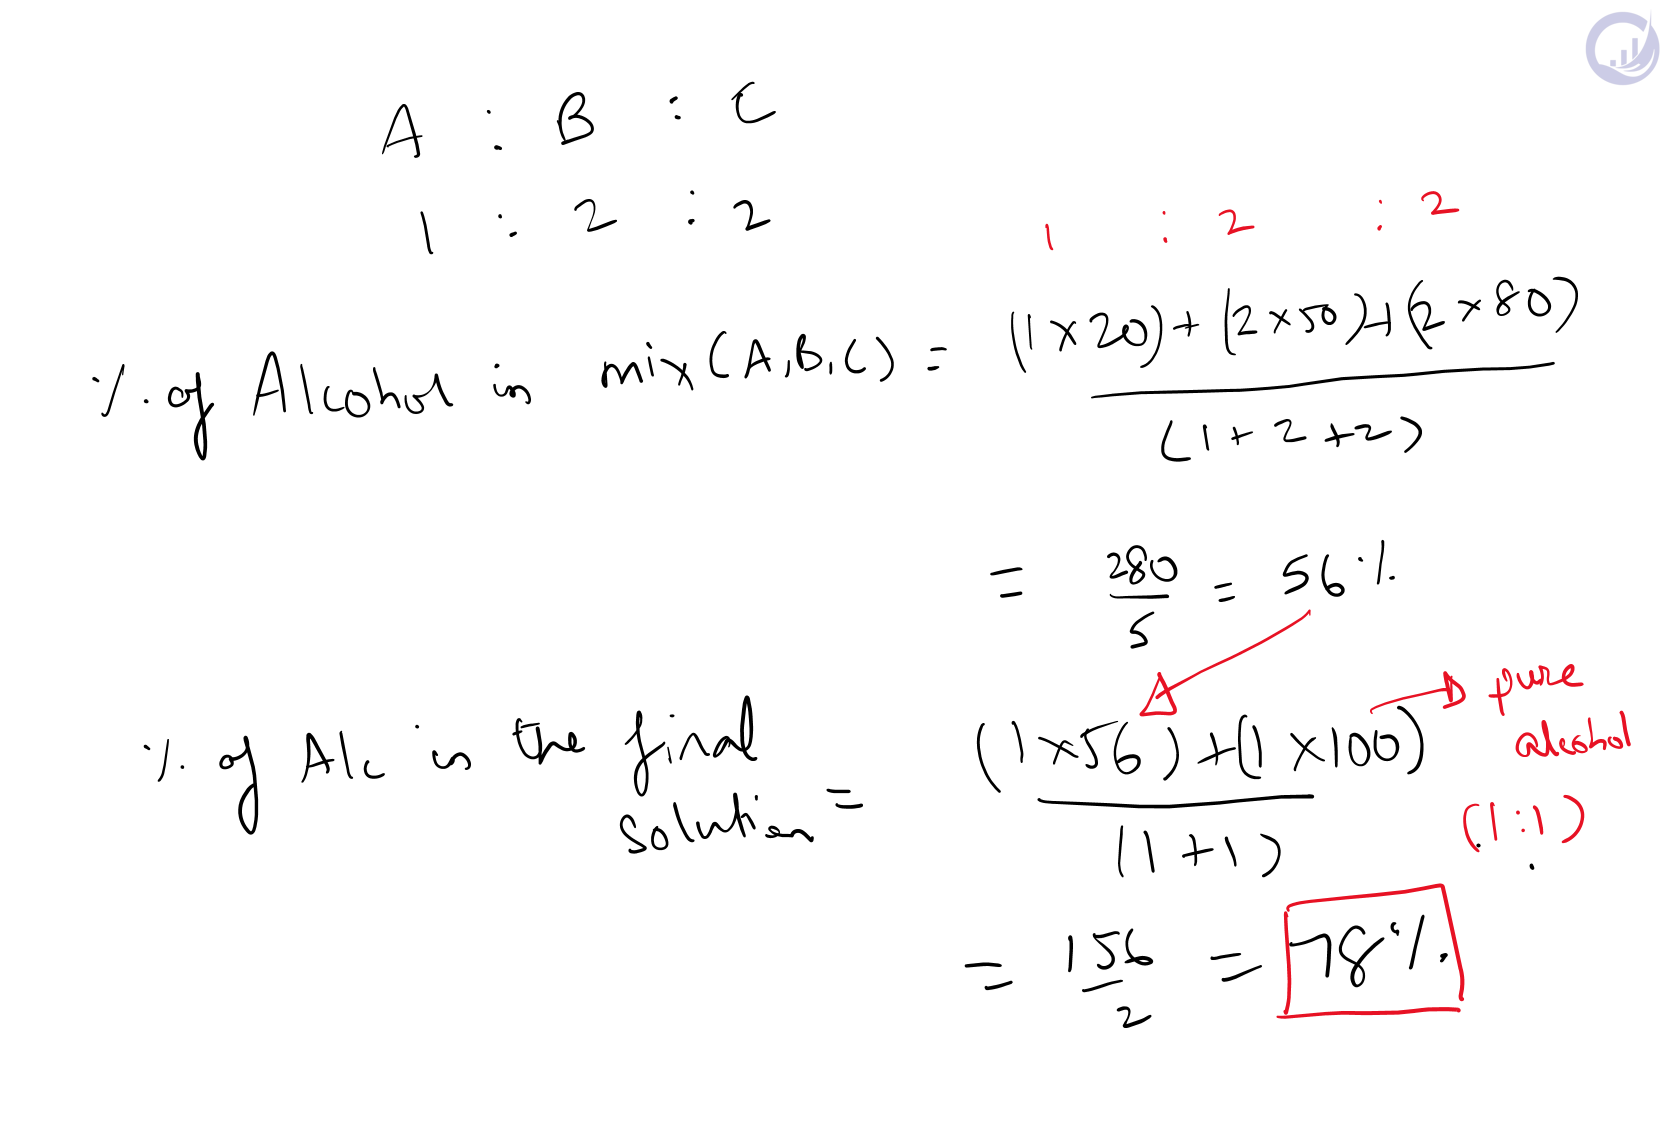 A : B : C
1 : 2 : 2
1 : 2 : 2
% of Alcohol in mix (A,B,C) = (1 x 20) + (2 x 50) + (2 x 80)
(1 + 2 + 2)
= 280 / 5 = 56 %
% of Alc in the final solution = (1 x 56) + (1 x 100)
(1 + 1)
pure
alcohol
(1 : 1)
= 156 / 2 = 78 %.